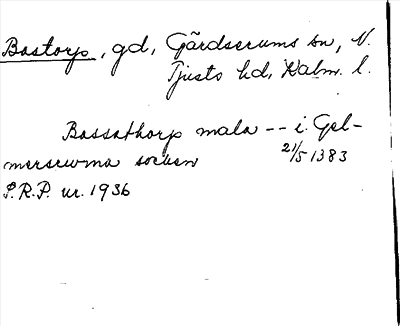 Bastorp, gd, Gärdserums sn, N.
Tjusts hd, Kalm. l.
Bassathorp mala -- i Gel-
mersrwma socken 21/5 1383
S.R.P. nr. 1936